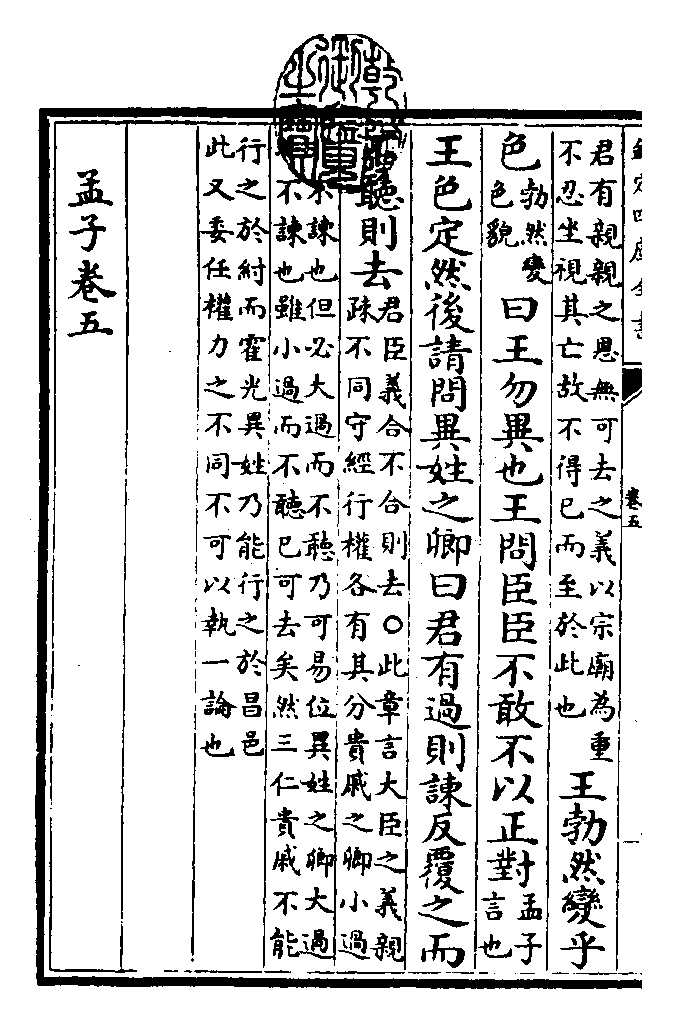 乾隆御覽之寶
欽定四庫全書
卷五
君有親親之恩無可去之義以宗廟為重
不忍坐視其亡故不得已而至於此也
王勃然變乎
色
勃然變
色貌
曰王勿異也王問臣臣不敢不以正對
孟子
言也
王色定然後請問異姓之卿曰君有過則諫反覆之而
聽則去
君臣義合不合則去○此章言大臣之義親
疎不同守經行權各有其分貴戚之卿小過
不諫也但必大過而不聽乃可易位異姓之卿大過
不諫也雖小過而不聽已可去矣然三仁貴戚不能
行之於紂而霍光異姓乃能行之於昌邑
此又委任權力之不同不可以執一論也
孟子卷五